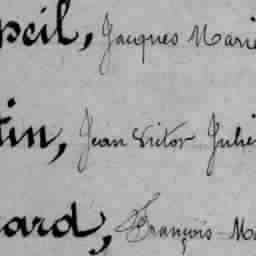 peil, Jacques Marie
tin, Jean Victor Julie
ard, François M